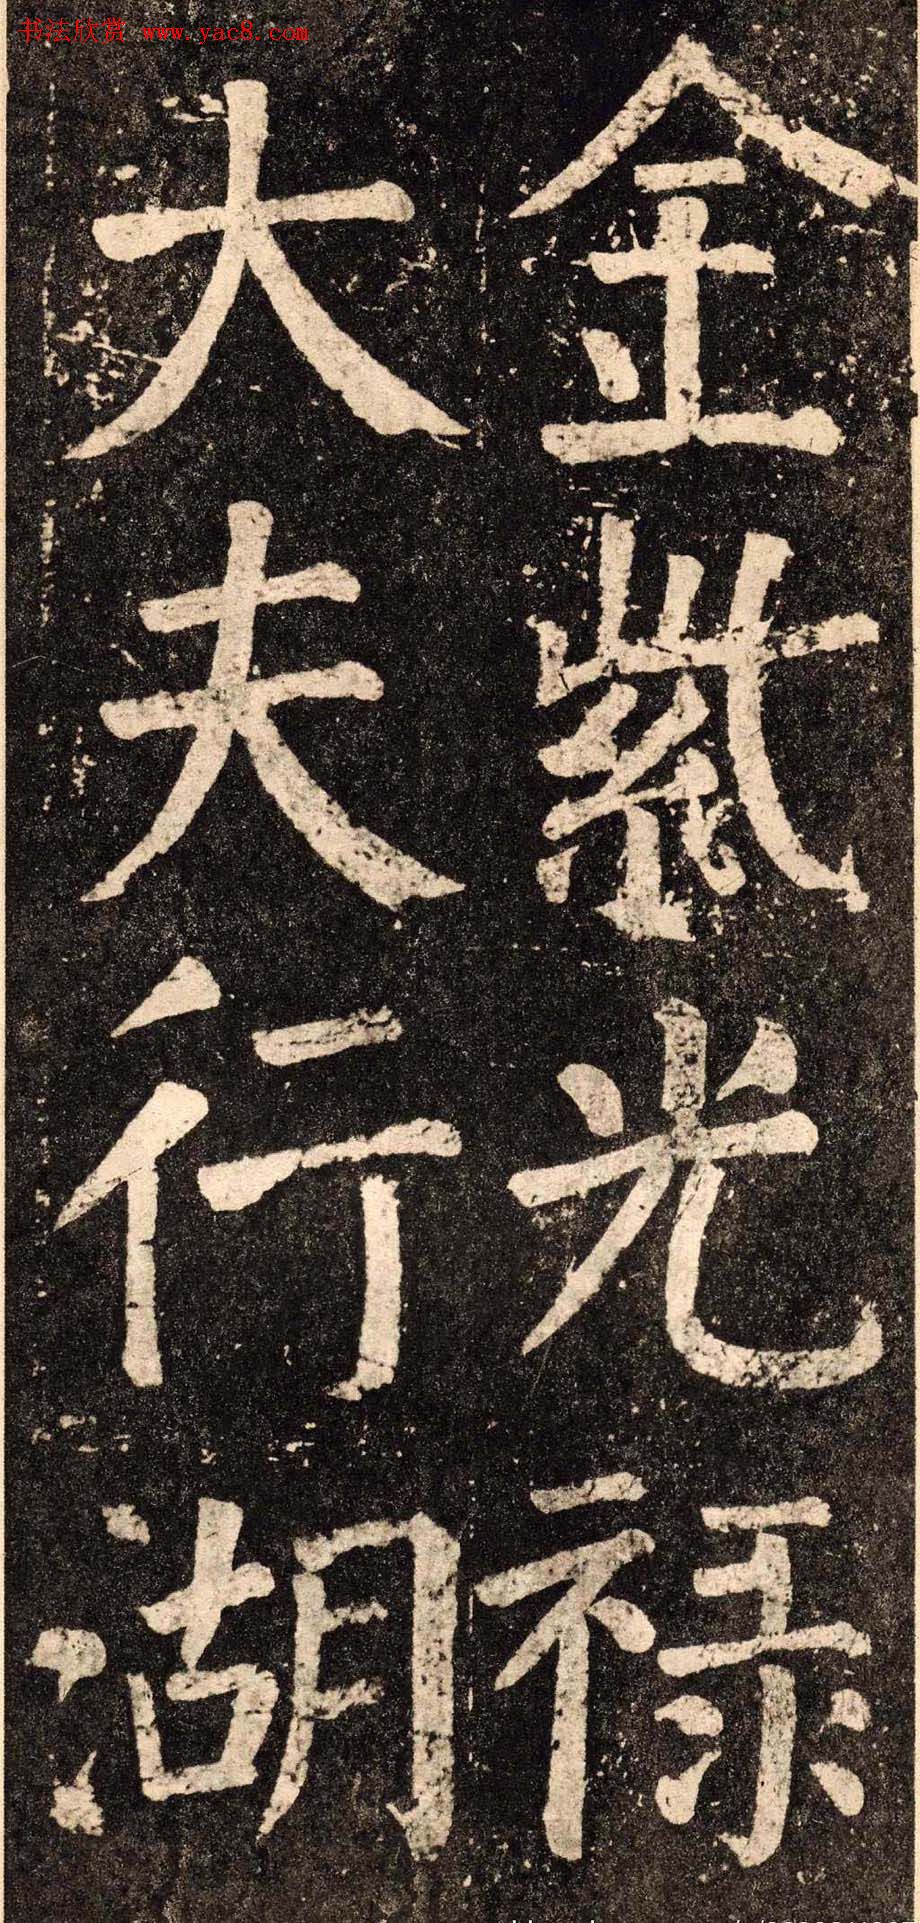 书法欣赏 www.yac8.com
金紫光禄
大夫行湖